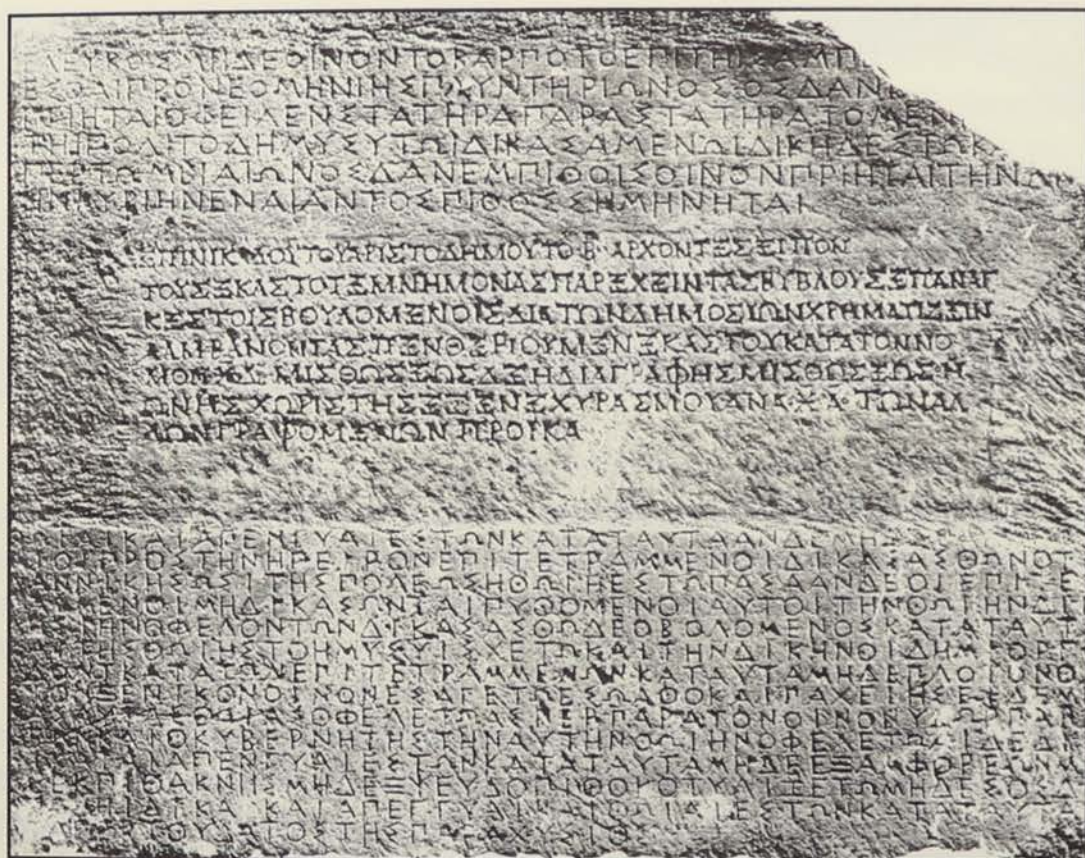 ΛΕΥΚΟΣΜΗΔΕΟΙΝΟΝΤΟΚΑΡΠΟΤΟΕΠΙΤΗΙΣΑΜΠ
ΕΣΘΑΙΠΡΟΝΕΟΜΗΝΙΗΣΠΛΥΝΤΗΡΙΩΝΟΣΟΣΔΑΝ
ΡΙΗΤΑΙΟΦΕΙΛΕΝΣΤΑΤΗΡΑΠΑΡΑΣΤΑΤΗΡΑΤΟΜΕΝ
ΤΗΙΠΟΛΙΤΟΔΗΜΥΣΥΤΩΙΔΙΚΑΣΑΜΕΝΩΙΔΙΚΗΔΕΣΤΩΚ
ΠΕΡΤΩΜΒΙΑΙΩΝΟΣΔΑΝΕΜΠΙΘΟΙΣΟΙΝΟΝΠΡΙΗΤΑΙΤΗΝΩ
ΗΝΚΥΡΙΗΝΕΝΑΙΑΝΤΟΣΠΙΘΟΣΣΗΜΗΝΗΤΑΙ
ΕΠΙΝΙΚΑΔΟΥΤΟΥΑΡΙΣΤΟΔΗΜΟΥΤΟΒ ΑΡΧΟΝΤΕΣΕΙΠΟΝ
ΤΟΥΣΕΚΑΣΤΟΤΕΜΝΗΜΟΝΑΣΠΑΡΕΧΕΙΝΤΑΣΒΥΒΛΟΥΣΕΠΑΝΑΓ
ΚΕΣΤΟΙΣΒΟΥΛΟΜΕΝΟΙΣΔΙΑΤΩΝΔΗΜΟΣΙΩΝΧΡΗΜΑΤΙΖΕΙΝ
ΛΑΜΒΑΝΟΝΤΑΣΠΕΝΘΕΡΙΟΥΜΕΝΕΚΑΣΤΟΥΚΑΤΑΤΟΝΝΟ
ΜΟΝ ΔΕΜΙΣΘΩΣΕΩΣΔΕΗΔΙΑΓΡΑΦΗΣΜΙΣΘΩΣΕΩΣΗ
ΩΝΗΣΧΩΡΙΣΤΗΣΕΞΕΝΕΧΥΡΑΣΜΟΥΑΝΑ Α ΤΩΝΑΛ
ΛΩΝΓΡΑΦΟΜΕΝΩΝΠΡΟΙΚΑ
ΚΑΙΑΠΕΝΓΥΑΙΕΣΤΩΝΚΑΤΑΤΑΥΤΑΑΝΔΕΜΗ
ΟΙΠΡΟΣΤΗΝΗΠΕΙΡΟΝΕΠΙΤΕΤΡΑΜΜΕΝΟΙΔΙΚΑΣΑΣΘΩΝΟΤ
ΑΝΝΙΚΗΣΩΣΙΤΗΣΠΟΛΕΩΣΗΘΩΙΗΕΣΤΩΠΑΣΑΑΝΔΕΟΙΕΠΙΤΕ
ΜΕΝΟΙΜΗΔΙΚΑΣΩΝΤΑΙΠΥΘΟΜΕΝΟΙΑΥΤΟΙΤΗΝΘΩΙΗΝΔΙΠ
ΗΝΟΦΕΛΟΝΤΩΝΔΙΚΑΣΑΣΘΩΔΕΟΒΟΛΟΜΕΝΟΣΚΑΤΑΤΑΥΤ
ΤΗΣΘΩΙΗΣΤΟΗΜΥΣΥΙΣΧΕΤΩΚΑΙΤΗΝΔΙΚΗΝΟΙΔΗΜΙΟΡΓ
ΚΑΤΑΤΩΝΕΠΙΤΕΤΡΑΜΜΕΝΩΝΚΑΤΑΥΤΑΜΗΔΕΠΛΟΙΟΝΘ
ΞΕΝΙΚΟΝΟΙΝΟΝΕΣΑΓΕΤΩΕΣΩΑΘΟΚΑΙΠΑΧΕΙΗΣΕΙΔΕΜ
ΟΦΕΛΕΤΩΑΣΠΕΡΠΑΡΑΤΟΝΟΙΝΟΝΥΔΩΡΠΑΡ
ΟΚΥΒΕΡΝΗΤΗΣΤΗΝΑΥΤΗΝΘΩΙΗΝΟΦΕΛΕΤΩΑΙΔΕΔΙΚ
ΑΠΕΝΓΥΑΙΕΣΤΩΝΚΑΤΑΤΑΥΤΑΜΗΔΕΕΞΑΜΦΟΡΕΩΝΜ
ΕΚΠΙΘΑΚΝΗΣΜΗΔΕΕΞΨΕΥΔΟΠΙΘΟΚΟΤΥΛΙΖΕΤΩΜΗΔΕΣΟΣΔ
ΗΙΔΙΚΑΙΚΑΙΑΠΕΓΓΥΑΙΚΑΙΘΩΙΑΙΕΣΤΩΝΚΑΤΑ
ΤΟΥΔΑΤΟΣΤΗΣΠΑΡΑΧΥΣΙΟΣ